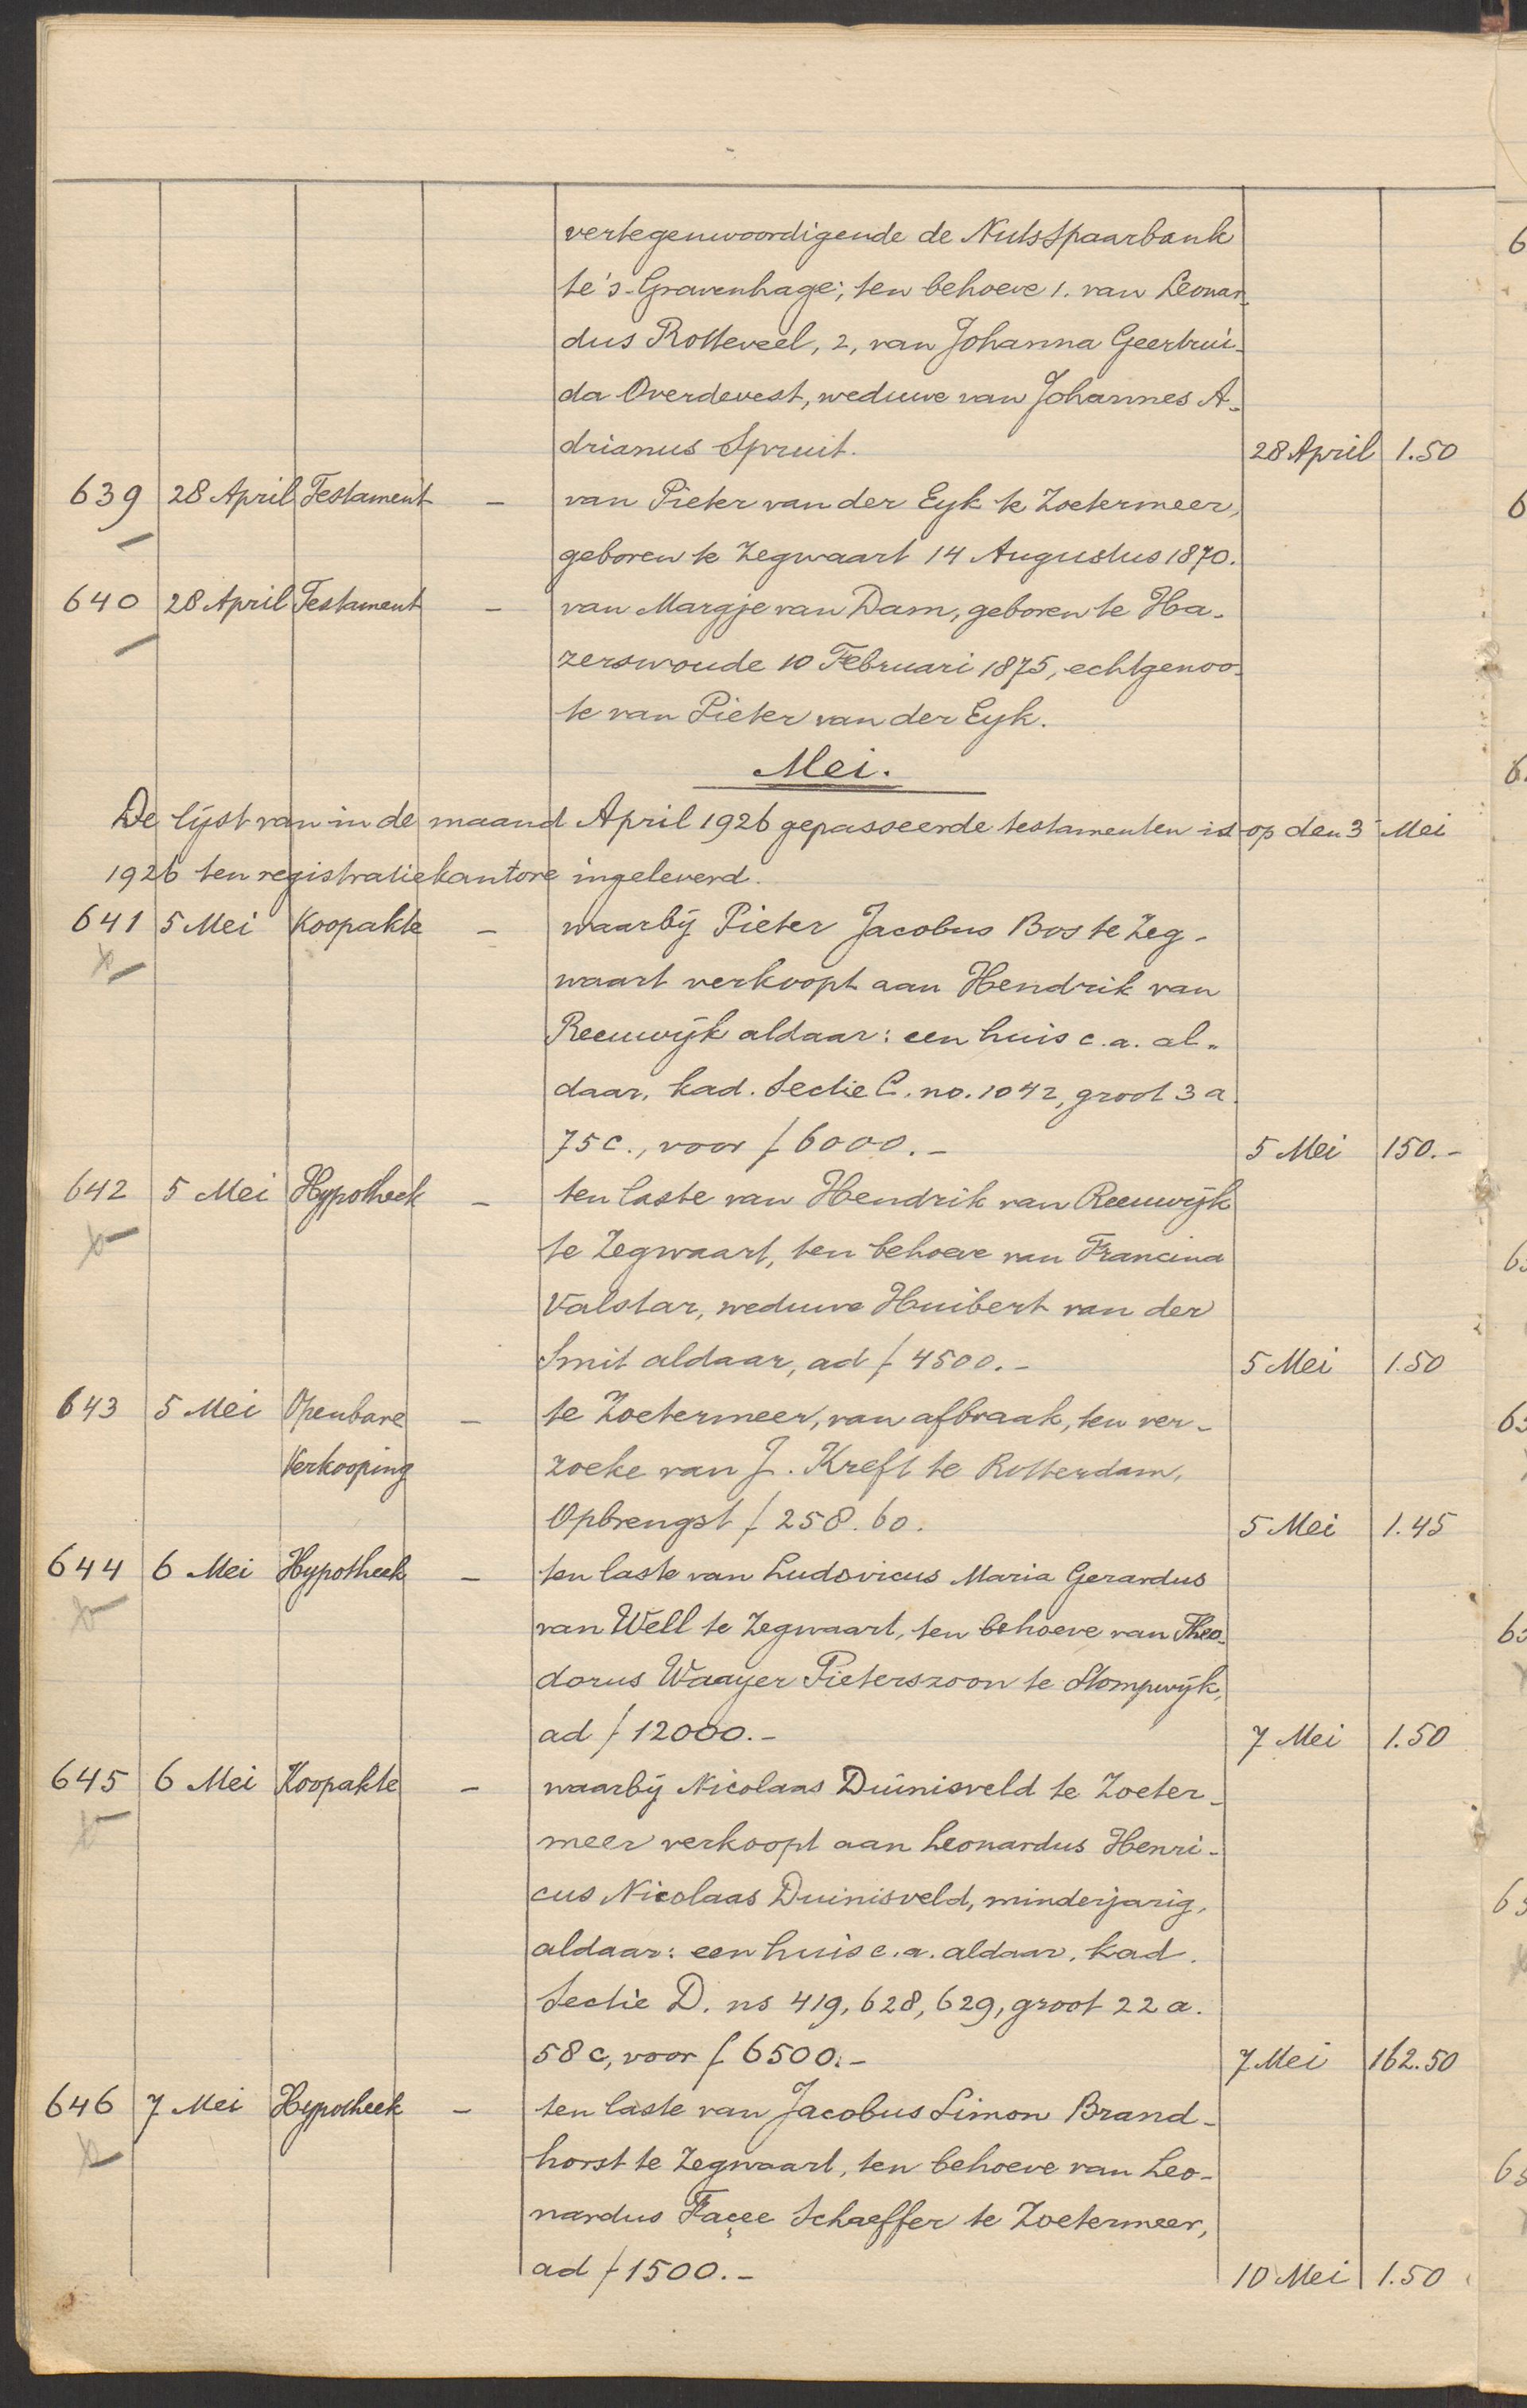 vertegenwoordigende de Nutsspaarbank
te 's-Gravenhage; ten behoeve 1. van Leonar-
dus Rotteveel, 2, van Johanna Geertrui-
da Overdevest, weduwe van Johannes A-
drianus Spruit. 28 April 1.50
639 28 April Testament - van Pieter van der Eyk te Zoetermeer,
geboren te Zegwaart 14 Augustus 1870.
640 28 April Testament - van Margje van Dam, geboren te Ha-
zerswoude 10 Februari 1875, echtgenoo-
te van Pieter van der Eyk.
Mei.
De lijst van in de maand April 1926 gepasseerde testamenten is op den 3 Mei
1926 ten registratiekantore ingeleverd.
641 5 Mei Koopakte - waarbij Pieter Jacobus Bos te Zeg-
waart verkoopt aan Hendrik van
Reeuwijk aldaar: een huis c.a. al-
daar, kad. Sectie C. no. 1042, groot 3 a.
75 c., voor f 6000.- 5 Mei 150.-
642 5 Mei Hypotheek - ten laste van Hendrik van Reeuwijk
te Zegwaart, ten behoeve van Francina
Valstar, weduwe Huibert van der
Smit aldaar, ad f 4500.- 5 Mei 1.50
643 5 Mei Openbare - te Zoetermeer, van afbraak, ten ver-
Verkooping zoeke van J. Kreft te Rotterdam,
Opbrengst f 258.60. 5 Mei 1.45
644 6 Mei Hypotheek - ten laste van Ludovicus Maria Gerardus
van Well te Zegwaart, ten behoeve van Theo-
dorus Waayer Pieterszoon te Stompwijk,
ad f 12000.- 7 Mei 1.50
645 6 Mei Koopakte - waarbij Nicolaas Duinisveld te Zoeter-
meer verkoopt aan Leonardus Henri-
cus Nicolaas Duinisveld, minderjarig,
aldaar: een huis c.a. aldaar, kad.
Sectie D. ns 419, 628, 629, groot 22 a.
58 c, voor f 6500.- 7 Mei 162.50
646 7 Mei Hypotheek - ten laste van Jacobus Simon Brand-
horst te Zegwaart, ten behoeve van Leo-
nardus Façee Schaeffer te Zoetermeer,
ad f 1500.- 10 Mei 1.50